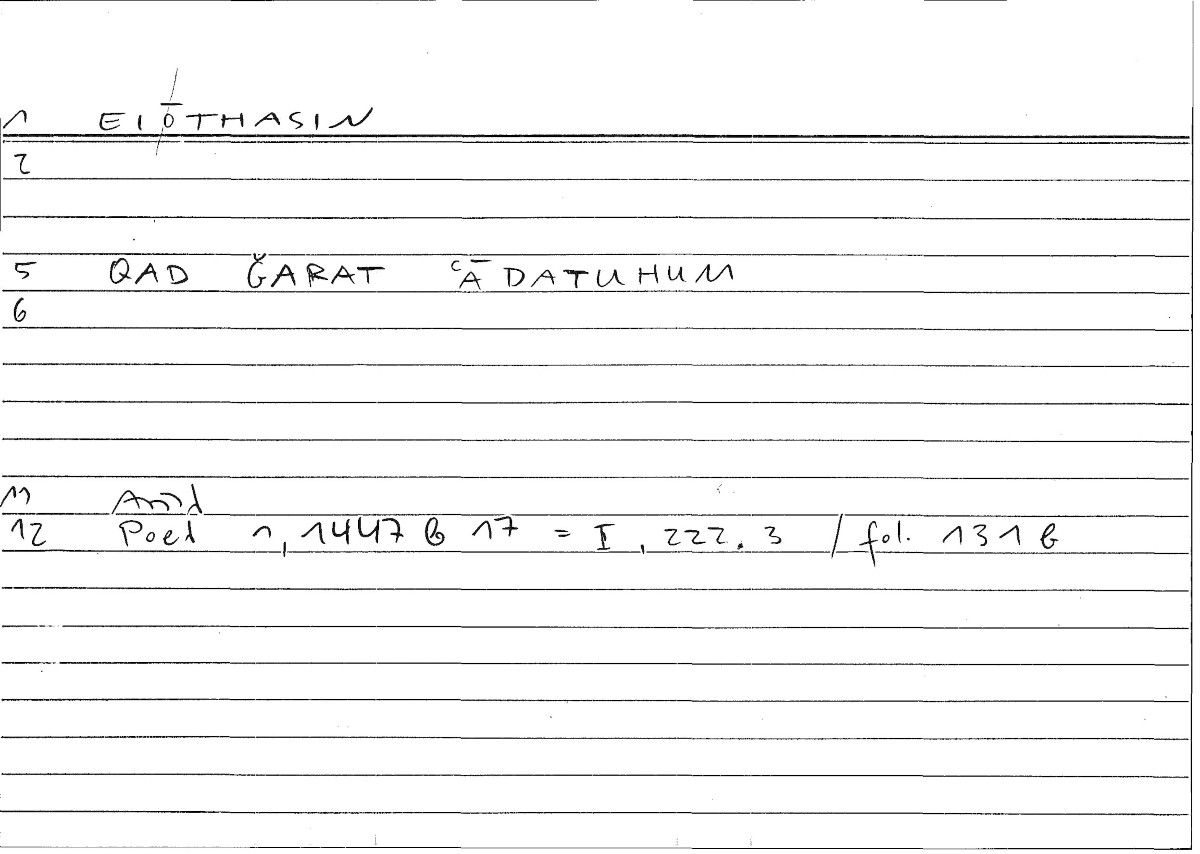 1 EIŌTHASIN
2
5 QAD ǦARAT ʿĀDATUHUM
6
11 Arist
12 Poet 1, 1447 b 17 = I, 222.3 / fol. 131 b